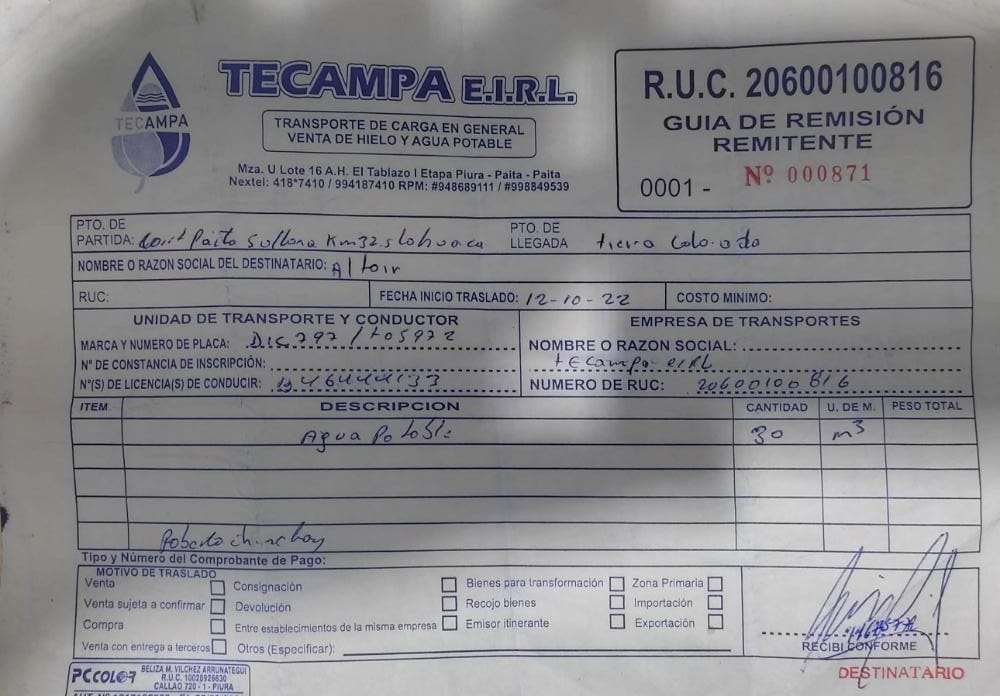 TECAMPA E.I.R.L.
TECAMPA
TRANSPORTE DE CARGA EN GENERAL
VENTA DE HIELO Y AGUA POTABLE
Mza. U Lote 16 A.H. El Tablazo I Etapa Piura - Paita - Paita
Nextel: 418*7410 / 994187410 RPM: #948689111 / #998849539
R.U.C. 20600100816
GUIA DE REMISIÓN
REMITENTE
0001 - Nº 000871
PTO. DE PARTIDA: Paita Sullana Km32.
PTO. DE LLEGADA tierra Colorada
NOMBRE O RAZON SOCIAL DEL DESTINATARIO: Altair
RUC: FECHA INICIO TRASLADO: 12-10-22 COSTO MINIMO:
UNIDAD DE TRANSPORTE Y CONDUCTOR
MARCA Y NUMERO DE PLACA:
N° DE CONSTANCIA DE INSCRIPCIÓN:
N°(S) DE LICENCIA(S) DE CONDUCIR:
EMPRESA DE TRANSPORTES
NOMBRE O RAZON SOCIAL:
tecampa eirl
NUMERO DE RUC: 20600100816
ITEM DESCRIPCION CANTIDAD U. DE M. PESO TOTAL
Agua Potable 30 m3
Roberto
Tipo y Número del Comprobante de Pago:
MOTIVO DE TRASLADO
Venta Consignación Bienes para transformación Zona Primaria
Venta sujeta a confirmar Devolución Recojo bienes Importación
Compra Entre establecimientos de la misma empresa Emisor itinerante Exportación
Venta con entrega a terceros Otros (Especificar):
RECIBI CONFORME
DESTINATARIO
PCCOLOR
BELIZA M. VILCHEZ ARRUNATEGUI
R.U.C. 10028926630
CALLAO 720 - 1 - PIURA